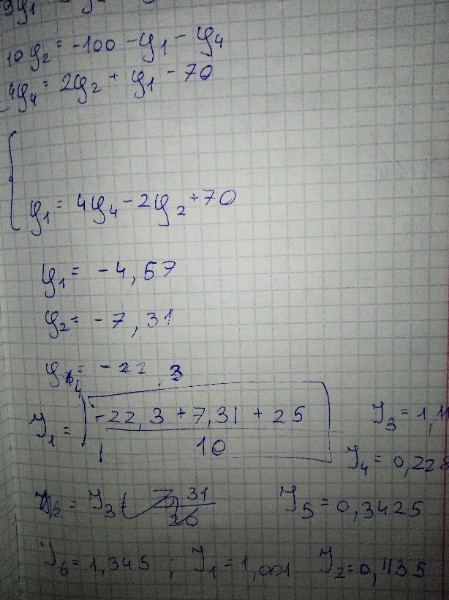 10φ₂ = -100 - φ₁ - φ₄
4φ₄ = 2φ₂ + φ₁ - 70
φ₁ = 4φ₄ - 2φ₂ + 70
φ₁ = -4,57
φ₂ = -7,31
φ₄ = -22,3
J₁ = -22,3 + 7,31 + 25 / 10
J₃ = 1,11
J₄ = 0,228
J₅ = 0,3425
J₆ = 1,345 ; J₁ = 1,001 J₂ = 0,1135